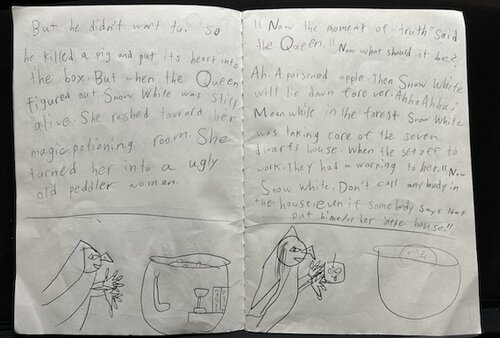 But he didn't want to. So
he killed a pig and put its heart into
the box. But when the Queen
figured out Snow White was still
alive. She rushed toward her
magic potioning room. She
turned her into a ugly
old peddler woman.
"Now the moment of truth" said
the Queen. "Now what should it be?
Ah. A poisened apple. Then Snow White
will lie down forever. Ahhahha!
Meanwhile in the forest Snow White
was taking care of the seven
dwarfs house. When the set off to
work, they had a warning to her. "Now
Snow White, Don't call any body in
the house, even if somebody says
put hime/or her in the house."